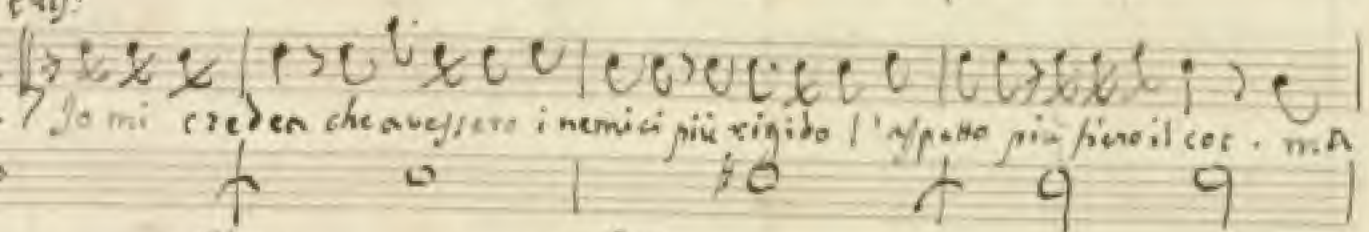 Io mi credea che avessero i nemici più rigido l'aspetto più fiero il cor. mA